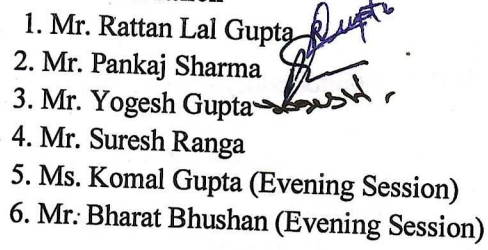 1. Mr. Rattan Lal Gupta
2. Mr. Pankaj Sharma
3. Mr. Yogesh Gupta
4. Mr. Suresh Ranga
5. Ms. Komal Gupta (Evening Session)
6. Mr. Bharat Bhushan (Evening Session)